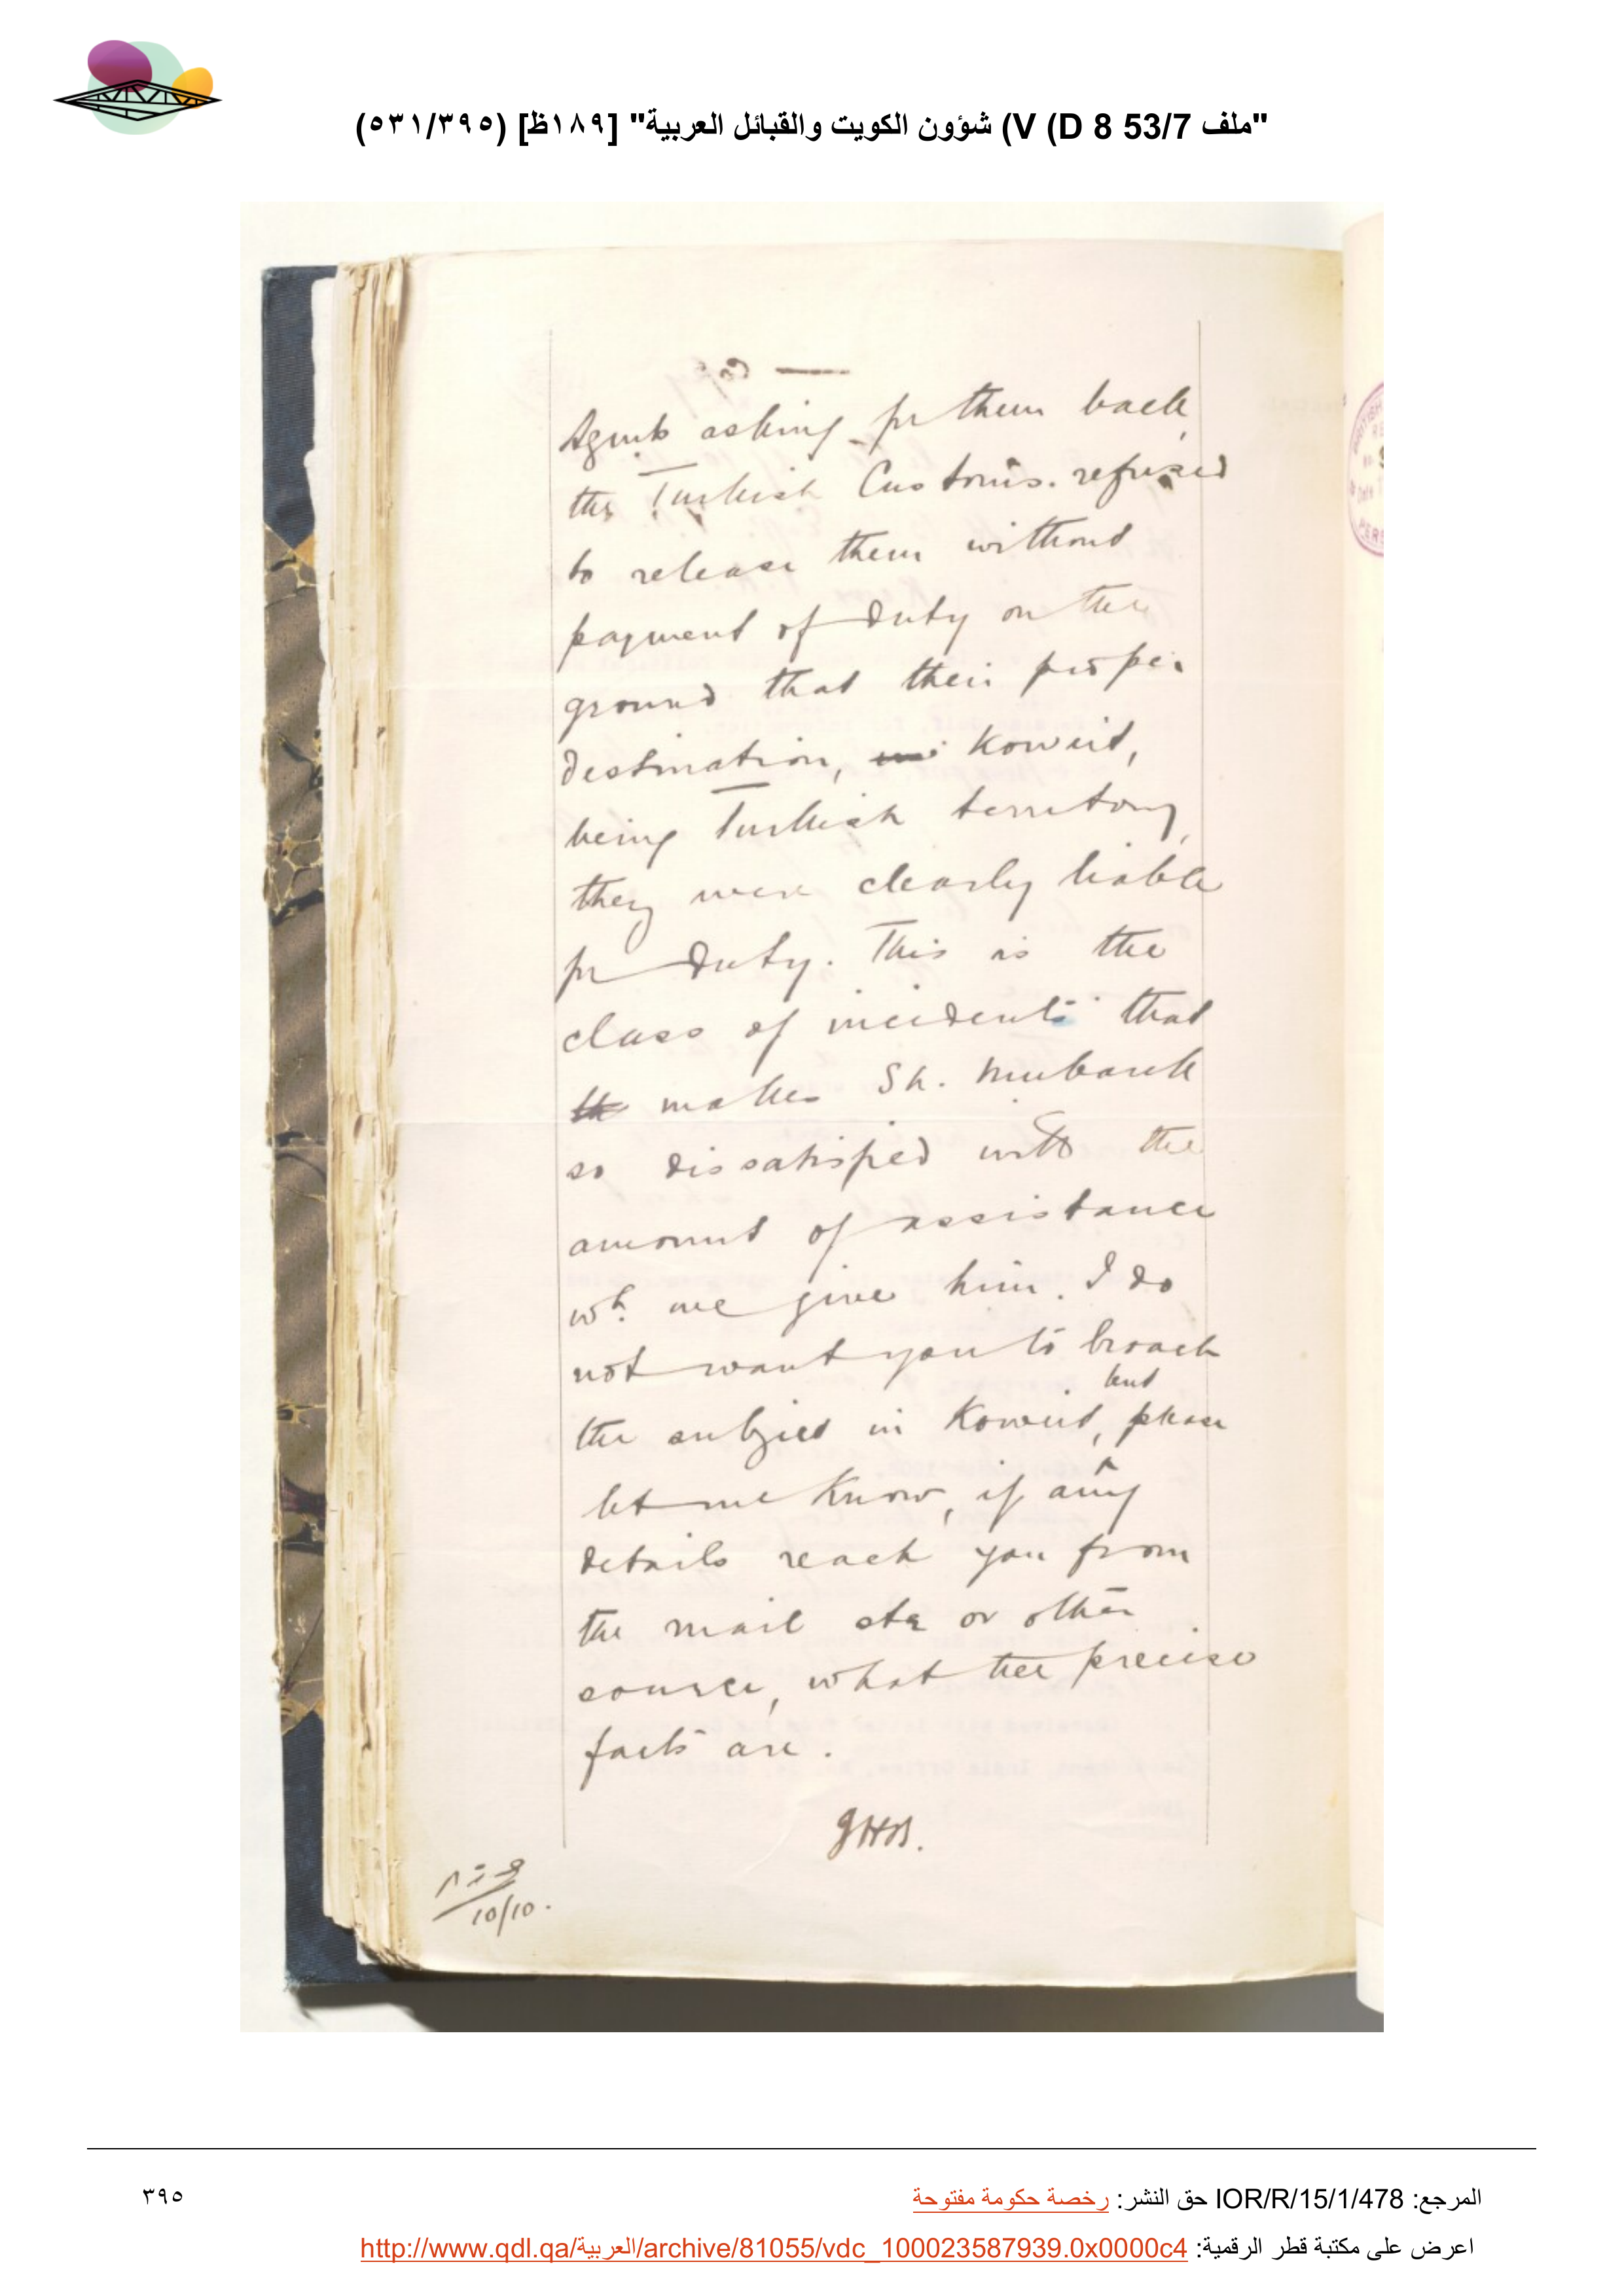 "ملف 53/7 D 8) V) شؤون الكويت والقبائل العربية" [١٨٩ظ] (٥٣١/٣٩٥)
Agents asking for them back,
the Turkish Customs refused
to release them without
payment of duty on the
ground that their proper
destination, Koweit,
being Turkish territory,
they were clearly liable
for duty. This is the
class of incidents that
makes Sh. Mubarak
so dissatisfied with the
amount of assistance
wh. we give him. I do
not want you to broach
the subject in Koweit, but please
let me know, if any
details reach you from
the mail str or other
source, what the precise
facts are.
10/10.
المرجع: IOR/R/15/1/478 حق النشر: رخصة حكومة مفتوحة
٣٩٥
اعرض على مكتبة قطر الرقمية: http://www.qdl.qa/العربية/archive/81055/vdc_100023587939.0x0000c4